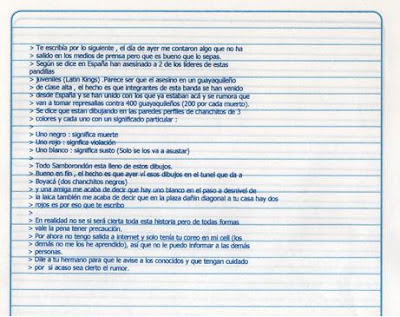 > Te escribía por lo siguiente , el día de ayer me contaron algo que no ha
> salido en los medios de prensa pero que es bueno que lo sepas.
> Según se dice en España han asesinado a 2 de los líderes de estas
pandillas
> juveniles (Latin Kings) .Parece ser que el asesino en un guayaquileño
> de clase alta , el hecho es que integrantes de esta banda se han venido
> desde España y se han unido con los que ya estaban acá y se rumora que
> van a tomar represalias contra 400 guayaquileños (200 por cada muerto).
> Se dice que estan dibujando en las paredes perfiles de chanchitos de 3
> colores y cada uno con un significado particular :
>
> Uno negro : significa muerte
> Uno rojo : signfica violación
> Uno blanco : significa susto (Solo se los va a asustar)
>
> Todo Samborondón esta lleno de estos dibujos.
> Bueno en fin , el hecho es que ayer ví esos dibujos en el tunel que da a
> Boyacá (dos chanchitos negros)
> y una amiga me acaba de decir que hay uno blanco en el paso a desnivel de
> la laica también me acaba de decir que en la plaza dañin diagonal a tu casa hay dos
> rojos es por eso que te escribo
>
> En realidad no se si será cierta toda esta historia pero de todas formas
> vale la pena tener precaución.
> Por ahora no tengo salida a internet y solo tenía tu coreo en mi cell (los
> demás no me los he aprendido), asi que no le puedo informar a las demás
> personas.
> Dile a tu hermano para qué le avise a los conocidos y que tengan cuidado
> por si acaso sea cierto el rumor.